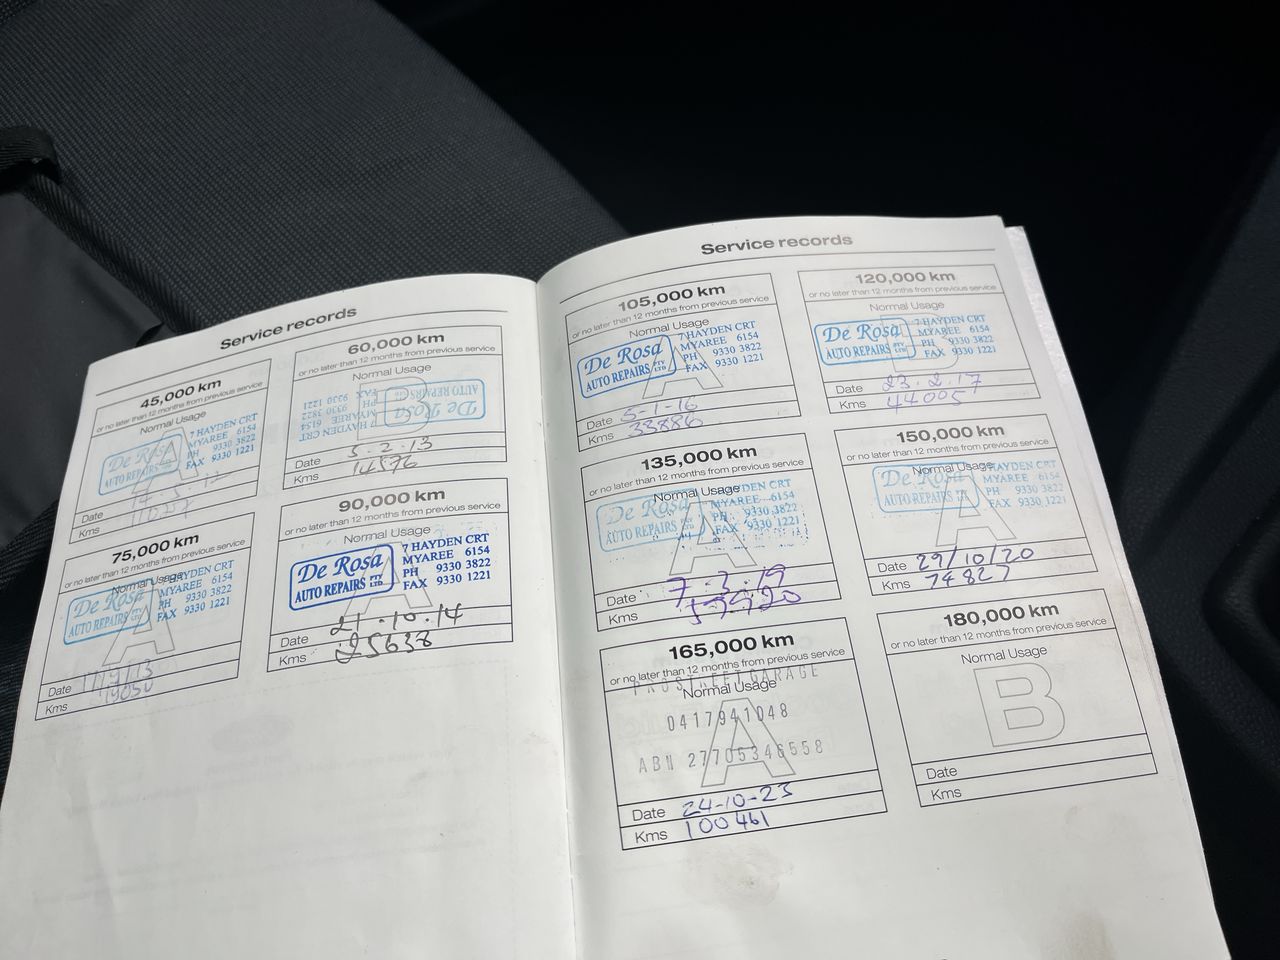 Service records
45,000 km
or no later than 12 months from previous service
Normal Usage
A
De Rosa
AUTO REPAIRS
7 HAYDEN CRT
MYAREE 6154
PH 9330 3822
FAX 9330 1221
Date
Kms
60,000 km
or no later than 12 months from previous service
Normal Usage
B
De Rosa
AUTO REPAIRS
7 HAYDEN CRT
MYAREE 6154
PH 9330 3822
FAX 9330 1221
Date 5.2.13
Kms 14576
75,000 km
or no later than 12 months from previous service
Normal Usage
A
De Rosa
AUTO REPAIRS
7 HAYDEN CRT
MYAREE 6154
PH 9330 3822
FAX 9330 1221
Date
Kms 19050
90,000 km
or no later than 12 months from previous service
Normal Usage
A
De Rosa
AUTO REPAIRS PTY LTD
7 HAYDEN CRT
MYAREE 6154
PH 9330 3822
FAX 9330 1221
Date 21.10.14
Kms 25638
Service records
105,000 km
or no later than 12 months from previous service
Normal Usage
A
De Rosa
AUTO REPAIRS PTY LTD
7 HAYDEN CRT
MYAREE 6154
PH 9330 3822
FAX 9330 1221
Date 5-1-16
Kms 33886
120,000 km
or no later than 12 months from previous service
Normal Usage
B
De Rosa
AUTO REPAIRS PTY LTD
7 HAYDEN CRT
MYAREE 6154
PH 9330 3822
FAX 9330 1221
Date 23.2.17
Kms 44005
135,000 km
or no later than 12 months from previous service
Normal Usage
A
De Rosa
AUTO REPAIRS
HAYDEN CRT
MYAREE 6154
PH 9330 3822
FAX 9330 1221
Date 7.3.19
Kms 59920
150,000 km
or no later than 12 months from previous service
Normal Usage
A
De Rosa
AUTO REPAIRS
HAYDEN CRT
MYAREE 6154
PH 9330 3822
FAX 9330 1221
Date 29/10/20
Kms 74827
165,000 km
or no later than 12 months from previous service
PROSTREET GARAGE
Normal Usage
0417941048
A
ABN 27705346558
Date 24-10-23
Kms 100461
180,000 km
or no later than 12 months from previous service
Normal Usage
B
Date
Kms